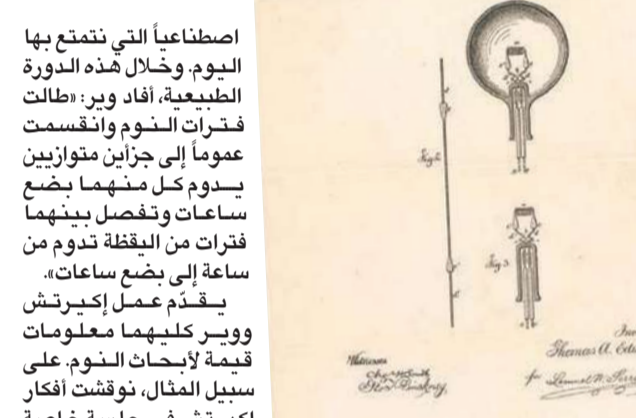 اصطناعياً التي نتمتع بها
اليوم. وخلال هذه الدورة
الطبيعية، أفاد وير: «طالت
فترات النوم وانقسمت
عموماً إلى جزأين متوازيين
يدوم كل منهما بضع
ساعات وتفصل بينهما
فترات من اليقظة تدوم من
ساعة إلى بضع ساعات».
يقدّم عمل إكيرتش
ووير كليهما معلومات
قيمة لأبحاث النوم. على
سبيل المثال، نوقشت أفكار
Fig 2
Fig 3
Witnesses
Thomas A. Edi
for Lemuel W. Serr